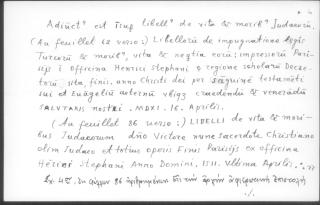 Adiũct⁹ est Itup libell⁹ de vita & morib⁹ Judæorũ.
(Au feuillet 62 verso :) Libellorũ de impugnatione legis
Turcorũ & morib⁹, vita & neqtia eorũ; impressorũ Pari-
sijs i officina Henrici Stephani e regione scholarũ Decre-
torũ sita, finis. anno Christi dei per sãguinẽ testamẽti
sui et Euãgelii æternũ ubiqz credendũ & venerãdũ
SALVTANTIS nostri. MDXI. 16. Aprilis.
(Au feuillet 86 verso :) LIBELLI de vita & mori-
bus Judæorum dño Victore nunc sacerdote Christiano
olim Judæo et totius operis Finis Parisijs ex officina
Hẽrici Stephani Anno Domini, 1511. Vltima Aprilis.
In 4ον. Ἐκ φύλλων 86 ἀριθμημένων